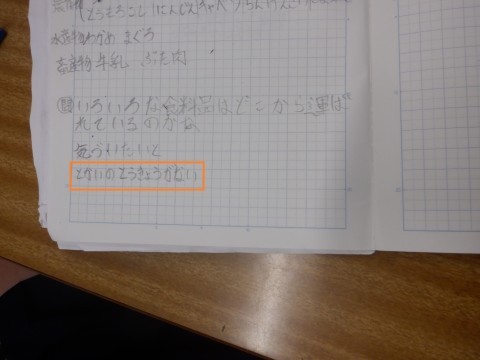 (とうもろこし にんじん キャベツ
水産物 わかめ まぐろ
畜産物 牛乳 ぶた肉
問 いろいろな食料品はどこから運ば
れているのかな
気づいたこと
とかいのとうきょうがない